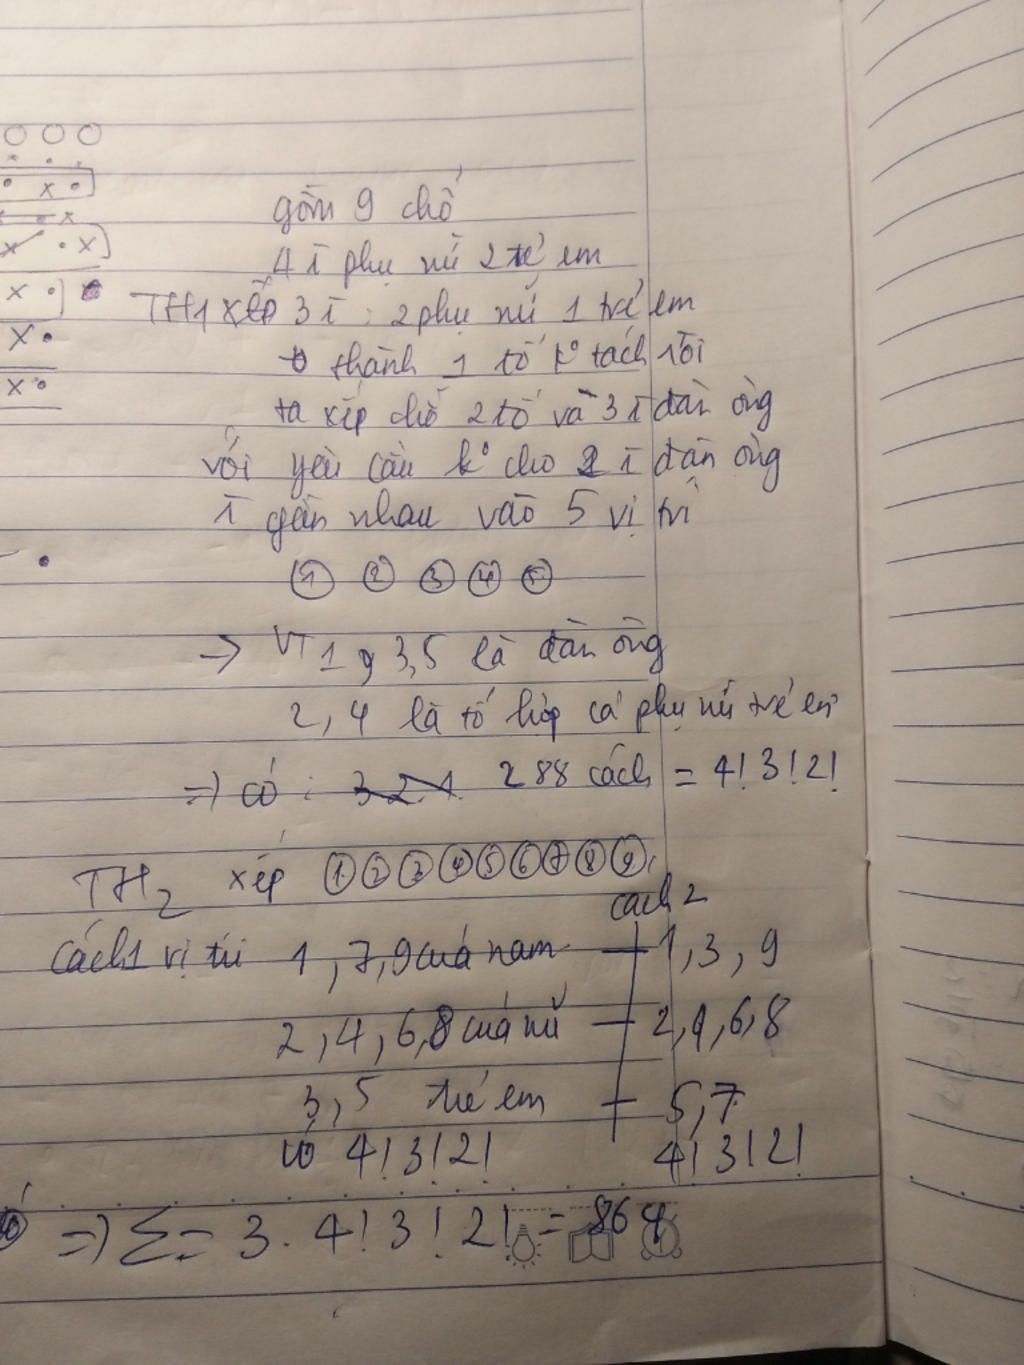 gồm 9 chỗ
4 ĩ phụ nữ 2 trẻ em
TH1 xếp 3 ĩ : 2 phụ nữ 1 trẻ em
thành 1 tổ k° tách rời
ta xếp chỗ 2 tổ và 3 ĩ đàn ông
với yêu cầu k° cho 2 ĩ đàn ông
ĩ gần nhau vào 5 vị trí
① ② ③ ④ ⑤
→ VT 1, 3, 5 là đàn ông
2, 4 là tổ hợp cả phụ nữ trẻ em
=) có : 3.2.1 288 cách = 4! 3! 2!
TH2 xếp ① ② ③ ④ ⑤ ⑥ ⑦ ⑧ ⑨
cách 2
Cách1 vị trí 1, 7, 9 của nam 1, 3, 9
2, 4, 6, 8 của nữ 2, 4, 6, 8
3, 5 trẻ em 5, 7
có 4! 3! 2! 4! 3! 2!
=) Σ = 3. 4! 3! 2! = 864